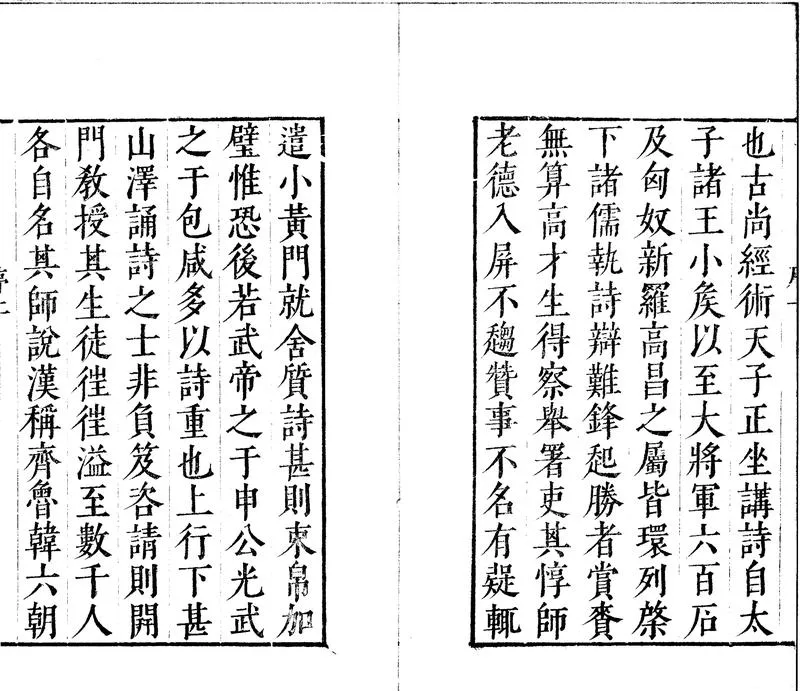 也古尚經術天子正坐講詩自太
子諸王小矦以至大將軍六百石
及匈奴新羅高昌之屬皆環列棨
下諸儒執詩辯難鋒起勝者賞賚
無算高才生得察舉署吏其惇師
老德入屏不趨贊事不名有疑輒
遣小黃門就舍質詩甚則束帛加
璧惟恐後若武帝之于申公光武
之于包咸多以詩重也上行下甚
山澤誦詩之士非負笈咨請則開
門敎授其生徒徃徃溢至數千人
各自名其師說漢稱齊魯韓六朝
序二